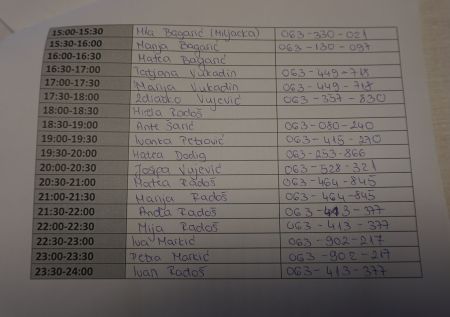 15:00-15:30 Mila Bagarić (Miljacka) 063-330-021
15:30-16:00 Marija Bagarić 063-130-097
16:00-16:30 Matea Bagarić
16:30-17:00 Tatjana Vukadin 063-449-718
17:00-17:30 Marija Vukadin 063-449-718
17:30-18:00 Zdravko Vujević 063-357-830
18:00-18:30 Mirela Radoš
18:30-19:00 Ante Sarić 063-080-240
19:00-19:30 Ivanka Petrović 063-415-270
19:30-20:00 Matea Dodig 063-253-866
20:00-20:30 Josipa Vujević 063-528-321
20:30-21:00 Matea Radoš 063-464-845
21:00-21:30 Marija Radoš 063-464-845
21:30-22:00 Anđa Radoš 063-413-377
22:00-22:30 Mija Radoš 063-413-377
22:30-23:00 Iva Markić 063-902-217
23:00-23:30 Petra Markić 063-902-217
23:30-24:00 Ivan Radoš 063-413-377